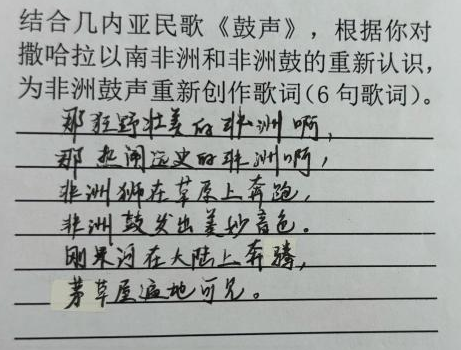 结合几内亚民歌《鼓声》，根据你对
撒哈拉以南非洲和非洲鼓的重新认识，
为非洲鼓声重新创作歌词(6句歌词)。
那狂野壮美的非洲啊，
那热闹远史的非洲啊，
非洲狮在草原上奔跑，
非洲鼓发出美妙音色。
刚果河在大陆上奔腾，
茅草屋遍地可见。